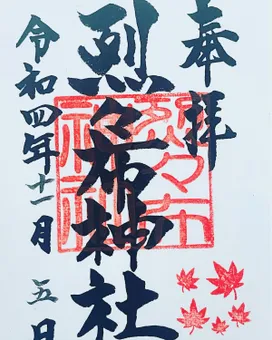 奉拝
烈々布神社
烈々布神社
令和四年十一月五日